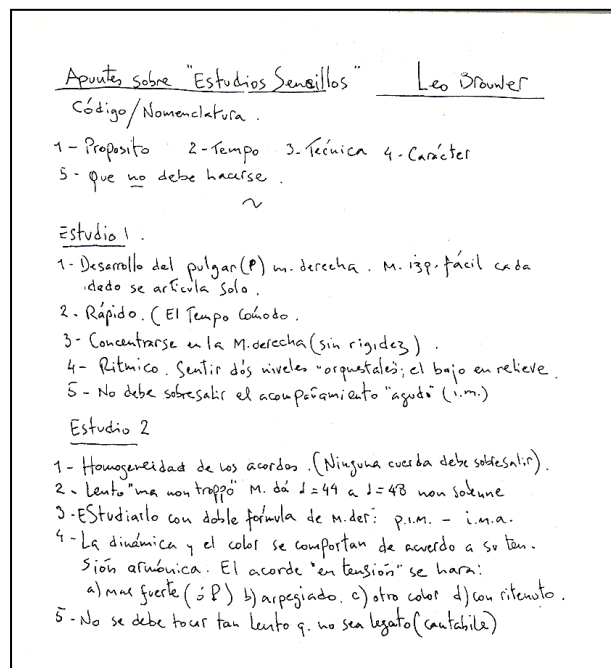 Apuntes sobre "Estudios Sencillos" Leo Brouwer
Código/Nomenclatura.
1 - Proposito 2 - Tempo 3 - Técnica 4 - Carácter
5 - que no debe hacerse.
~
Estudio 1.
1 - Desarrollo del pulgar (P) m. derecha. M. izq. fácil cada
dedo se articula solo.
2 - Rápido. (El Tempo cómodo.
3 - Concentrarse en la M. derecha (sin rigidez).
4 - Ritmico. Sentir dós niveles "orquestales"; el bajo en relieve.
5 - No debe sobresalir el acompañamiento "agudo" (i.m.)
Estudio 2
1 - Homogeneidad de los acordes. (Ninguna cuerda debe sobresalir).
2 - Lento "ma non troppo" M. dá ♩=44 a ♩=48 non solenne
3 - EStudiarlo con doble fórmula de M. der: p.i.m. - i.m.a.
4 - La dinámica y el color se comportan de acuerdo a su ten-
sión armónica. El acorde "en tensión" se hara:
a) mas fuerte (ó P) b) arpegiado. c) otro color d) con ritenuto.
5 - No se debe tocar tan lento q. no sea legato (cantabile)